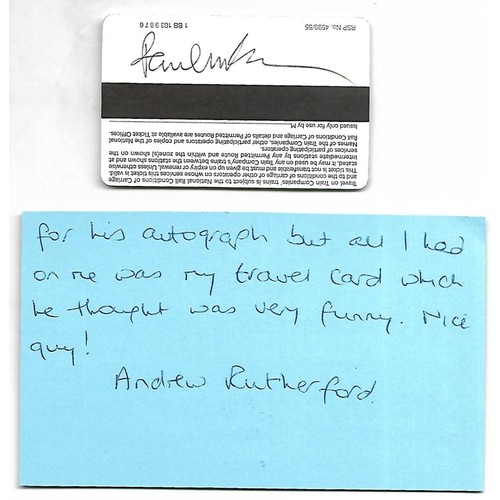 Travel on Train Companies trains is subject to the National Rail Conditions of Carriage
and to the conditions of carriage of other operators on whose services this ticket is valid.
This ticket is not transferable and must be given up on expiry or renewal. Unless otherwise
stated, it may be used on any Train Company trains between the stations shown and at
intermediate stations by any Permitted Route and within the zone(s) shown on the
services of participating operators.
Names of the Train Companies, other participating operators and copies of the National
Rail Conditions of Carriage and details of Permitted Routes are available at Ticket Offices.
Issued only for use by M
RSP No. 4599/55 1 BB 103 9876
for his autograph but all I had
on me was my travel card which
he thought was very funny. Nice
guy!
Andrew Rutherford.